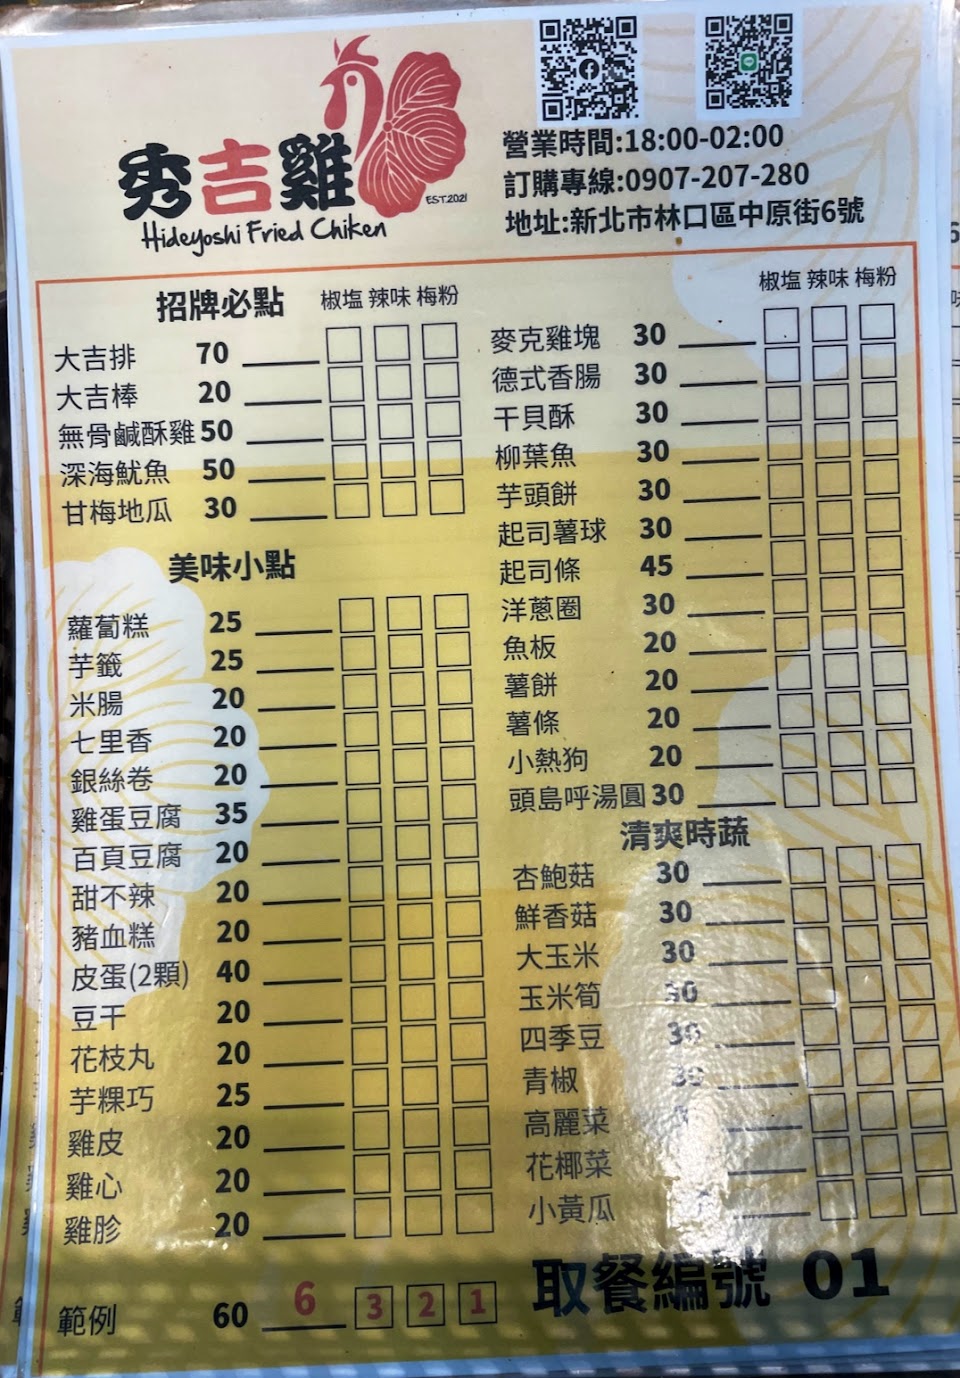 秀吉雞
Hideyoshi Fried Chiken
EST.2021
營業時間:18:00-02:00
訂購專線:0907-207-280
地址:新北市林口區中原街6號
招牌必點 椒塩 辣味 梅粉
大吉排 70
大吉棒 20
無骨鹹酥雞 50
深海魷魚 50
甘梅地瓜 30
美味小點
蘿蔔糕 25
芋籤 25
米腸 20
七里香 20
銀絲卷 20
雞蛋豆腐 35
百頁豆腐 20
甜不辣 20
豬血糕 20
皮蛋(2顆) 40
豆干 20
花枝丸 20
芋粿巧 25
雞皮 20
雞心 20
雞胗 20
範例 60 6 3 2 1
椒塩 辣味 梅粉
麥克雞塊 30
德式香腸 30
干貝酥 30
柳葉魚 30
芋頭餅 30
起司薯球 30
起司條 45
洋蔥圈 30
魚板 20
薯餅 20
薯條 20
小熱狗 20
頭島呼湯圓 30
清爽時蔬
杏鮑菇 30
鮮香菇 30
大玉米 30
玉米筍 30
四季豆 30
青椒 30
高麗菜
花椰菜
小黃瓜
取餐編號 01